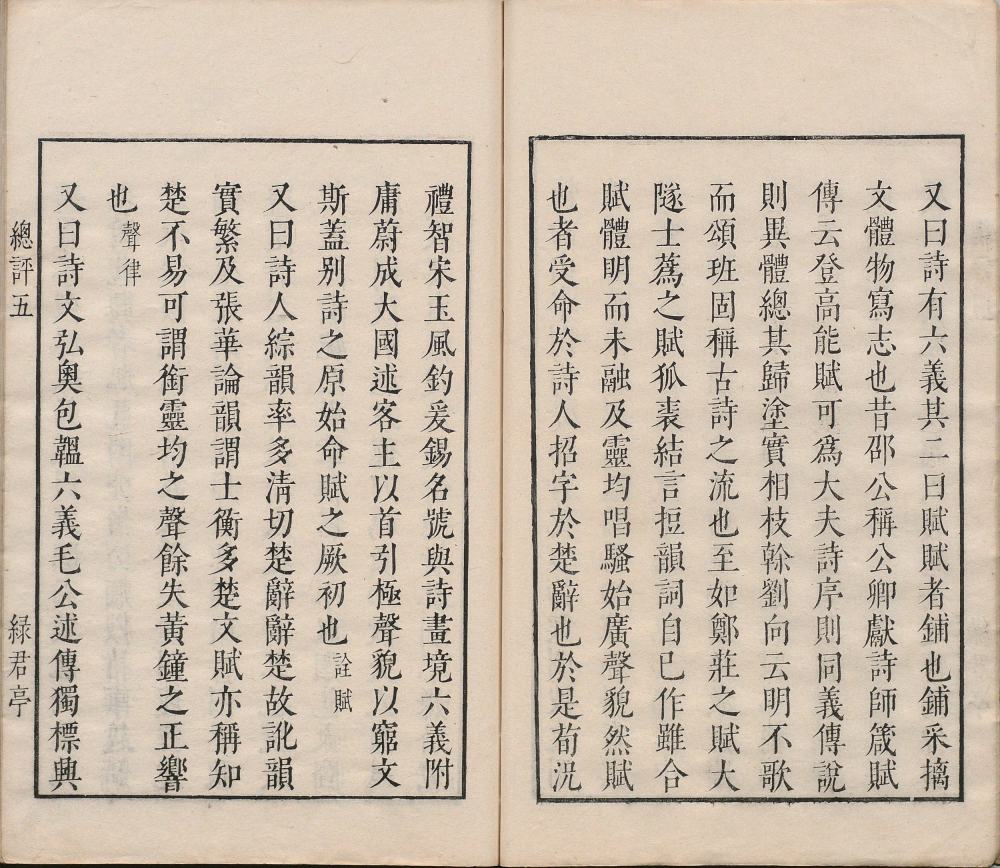 又曰詩有六義其二曰賦賦者鋪也鋪采摛
文體物寫志也昔邵公稱公卿獻詩師箴賦
傳云登高能賦可爲大夫詩序則同義傳說
則異體總其歸塗實相枝幹劉向云明不歌
而頌班固稱古詩之流也至如鄭莊之賦大
隧士蔿之賦狐裘結言挋韻詞自已作雖合
賦體明而未融及靈均唱騷始廣聲貌然賦
也者受命於詩人招字於楚辭也於是荀況
禮智宋玉風釣爰錫名號與詩畫境六義附
庸蔚成大國述客主以首引極聲貌以窮文
斯蓋别詩之原始命賦之厥初也詮賦
又曰詩人綜韻率多清切楚辭辭楚故訛韻
實繁及張華論韻謂士衡多楚文賦亦稱知
楚不易可謂銜靈均之聲餘失黃鐘之正響
也聲律
又曰詩文弘奧包韞六義毛公述傳獨標興
總評五
綠君亭